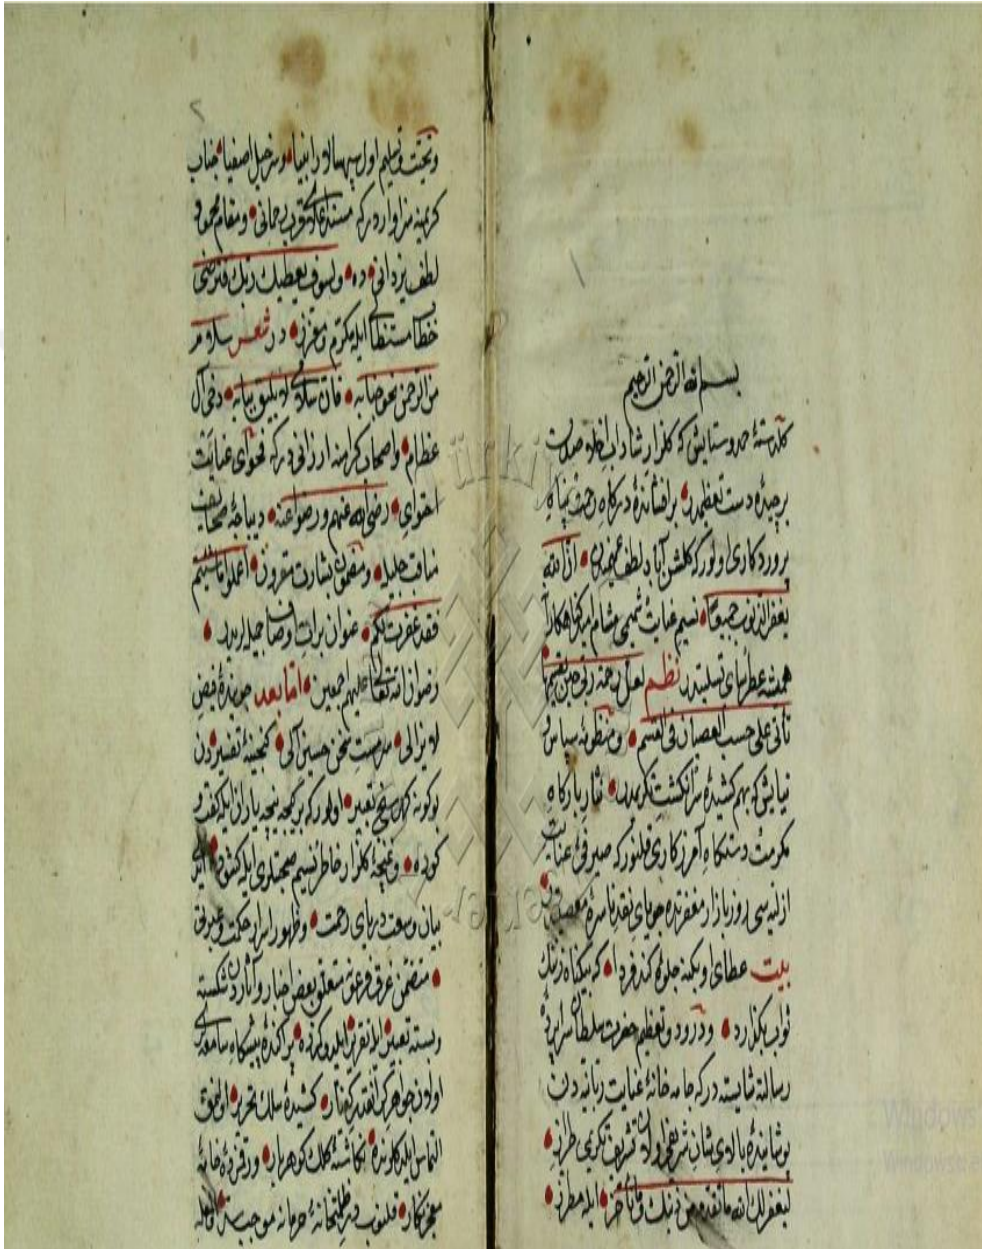 بسم الله الرحمن الرحيم
كلدستهٔ حمد وستايش كه كلزار شاداب اخلاصدن
برچيدهٔ دست تعظيمدر برافشاندهٔ درگاه رحمت پناه
پروردكارى اولور كه كلشن آباد لطف عميمندن ان الله
يغفر الذنوب جميعا نسيم عنايت شميمى مشام
هميشه عطرساى تسليتدر نظم لعل رحمة ربى حين يقسمها
تأتى على حسب العصيان فى القسم ومنظومهٔ سپاس و
نيايش كه بهم كشيدهٔ سرانكشت تكريمدر نثار باركاه
مكرمت دستكاه آمرزكارى قلنور كه صيرفئ عنايت
ازليه سى روز بازار مغفرتده جوياى نقد ناسرهٔ معصيت
بيت عطاى او بكنه جلوه كند فردا كه بيكناه زننك
ثواب بكذارد ودرود وتعظيم حضرت سلطان سراپردهٔ
رسالته شايسته در كه جامه خانهٔ عنايت ربانيه دن
پوشانيدهٔ بالاى شان شريفى اولان تشريف تكريمى طراز
ليغفر لك الله ما تقدم من ذنبك وما تأخر ايله مطرز
وتحيت وتسليم اول سپهسالار انبيا وسرخيل اصفيا جناب
كريمنه سزاواردر كه مسند قرب رحمانى ومقام محمود
لطف يزدانى ده ولسوف يعطيك ربك فترضى
خطاب مستطابى ايله مكرم ومعززدر شعر سلام
من الرحمن نحو جنابه فان سلامى لا يليق ببابه دخى آل
عظام واصحاب كرامنه ارزانى در كه فحواى عنايت
احتواى رضى الله عنهم ورضوا عنه ديباجهٔ صحايف
مناقب جليله ومضمون بشارت مقرون اعملوا ما شئتم
فقد غفرت لكم عنوان برات اوصاف جميله لريدر
رضوان الله تعالى عليهم اجمعين اما بعد جويندهٔ فيض
لا يزالى سرمست سخن حسين آلى كنجينهٔ تفسيردن
بو كونه كهرسنج تعبير اولور كه بر كيجه نيجه ياران ايله كفت و
كوده وغنچهٔ كلزار خاطر نسيم صحبتلرى ايله كشوده
بيان وسعت درياى رحمت وظهور اسرار حكمت
متضمن غرق فرعونه متعلق بعض اخبار وآثار شكسته
وبسته تعبير ايله تقرير ايلدوكمده پراكندهٔ پيشكاه سامعه لرى
اولان جواهر كشيدهٔ سلك تحرير اولنمق
التماس ايلدكلرنده نكاشتهٔ كلك كوهربار ورقپردهٔ خامهٔ
معجزنكار قلنوب